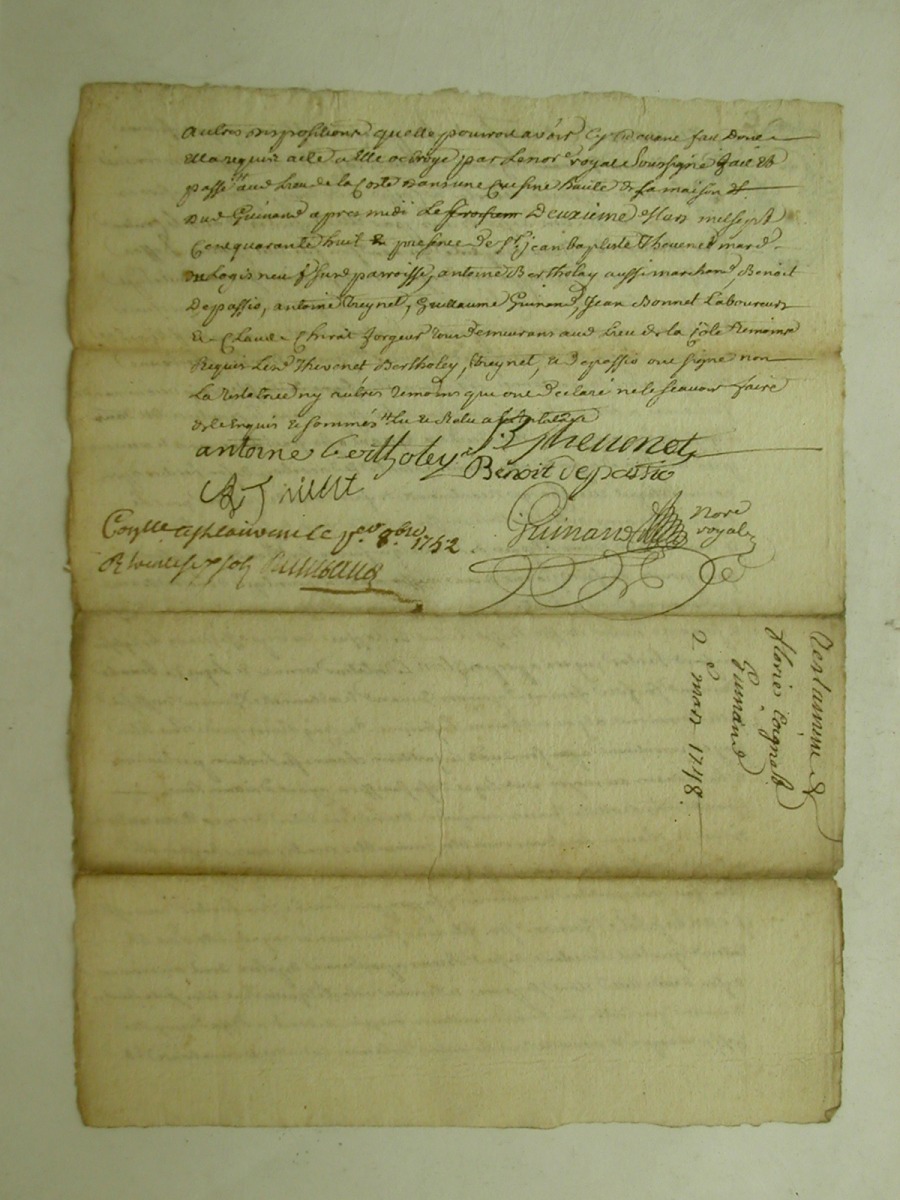 autres dispositions quelle pourroit avoir cy devant fait Dont
Ella requis acte a Elle octroyé par Le no.re royal Soussigné fait et
passé aud Lieu de la Coste dans une Cuisine haute de la maison
dud Guinand apres midi Le Deuxieme Mars mil sept
Cent quarante huit presence de S.r jean baptiste Thevenet march.d
du Logis neuf Sur d parroisse, antoine Bertholey aussi marchand, Benoit
Depassio, antoine Treynet, Guillaume Guinand, Jean Bonnet Laboureurs
et Claude Chirat forgeur tous demeurans aud Lieu de la Coste temoins
Requis Lesd Thevenet Bertholey, Treynet, et Depassio ont signé non
La testatrice ny autres temoins qui ont declaré ne le sçavoir faire
de ce Enquis et sommés Lu et Relu a la testatrice
antoine bertholey Thevenet
Benoit depassio
Guinand No.re royal
1752
testamant de
florie Coignet
Guinand
2.e mars 1748